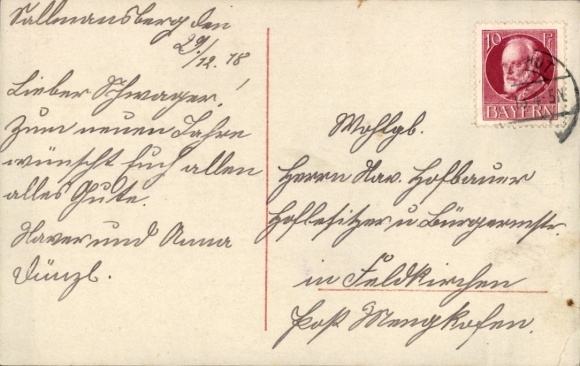 Sallmansberg den
29/12. 18
Lieber Schwager!
Zum neuen Jahre
wünscht Euch allen
alles Gute.
Xaver und Anna
Dünzl.
10 Pf
BAYERN
Wohlgb.
Herrn Xav. Hofbauer
Hofbesitzer u Bürgermstr.
in Feldkirchen
Post Mengkofen.